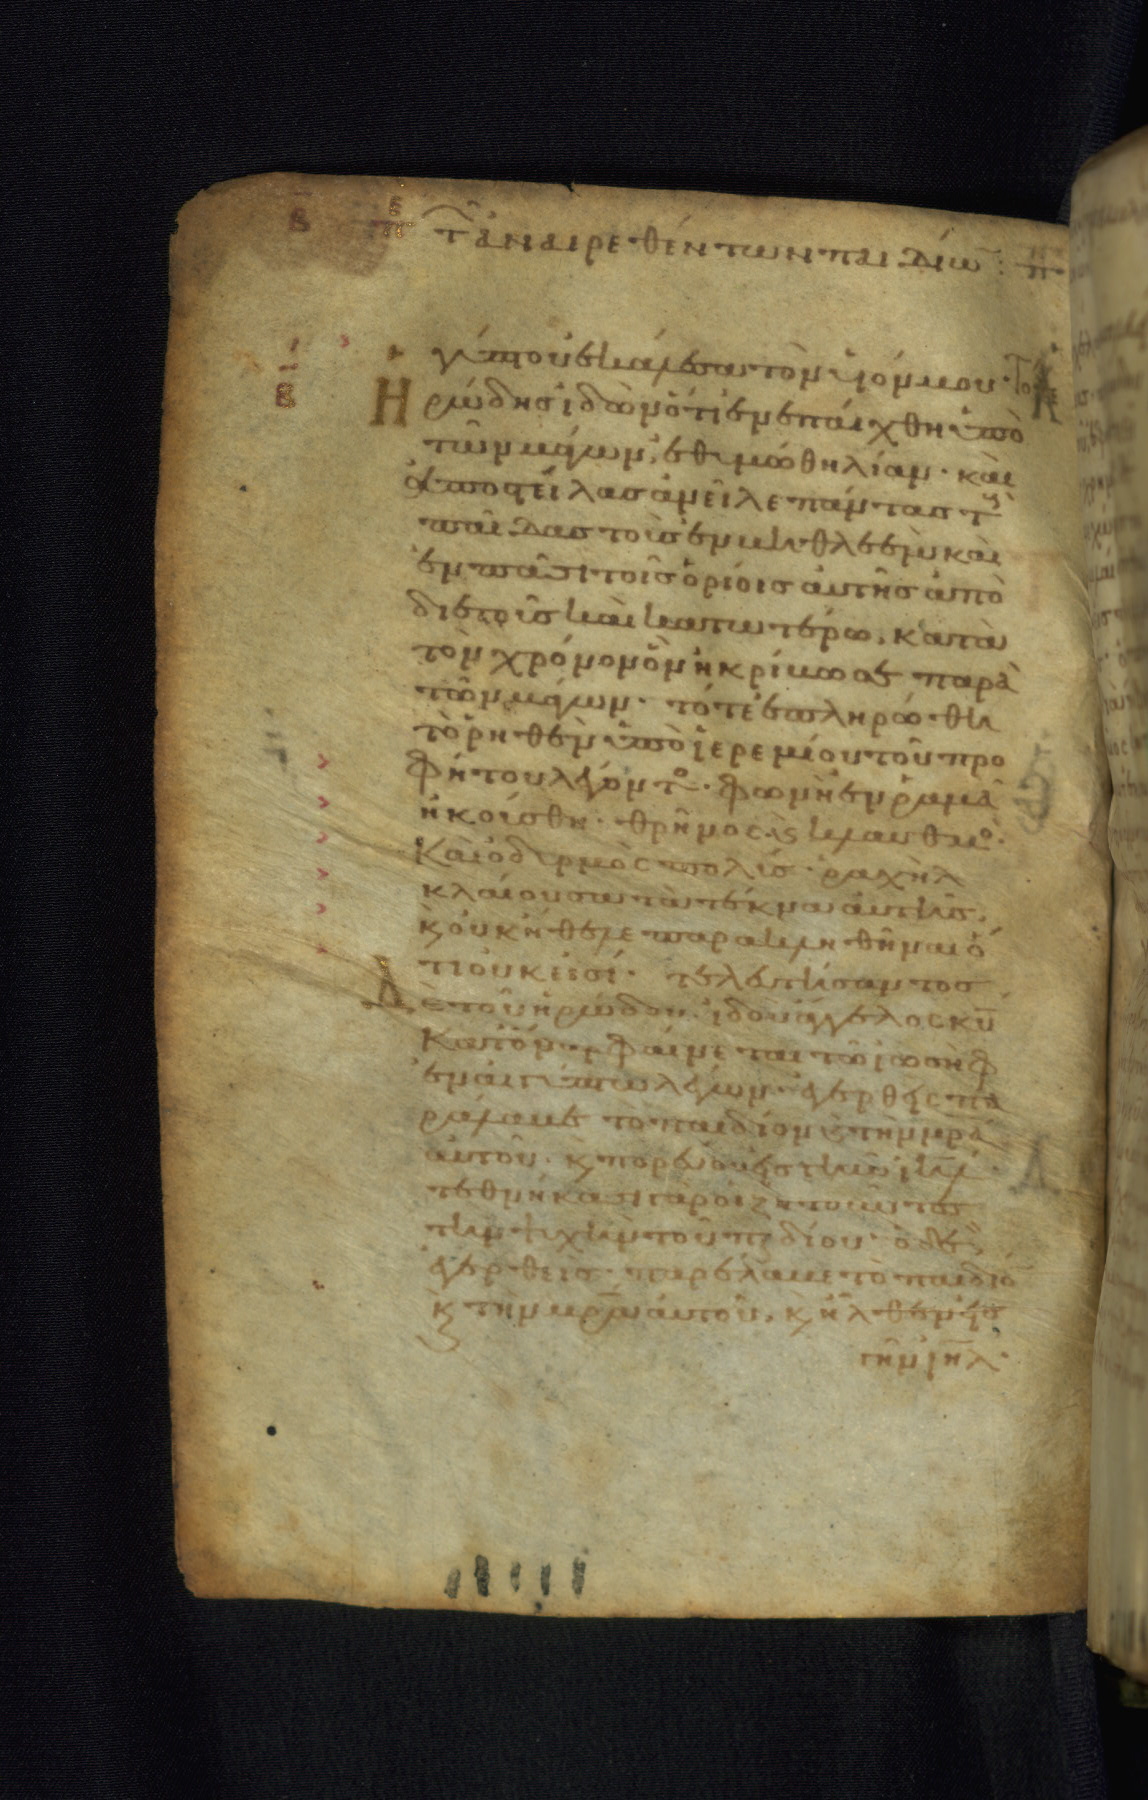 β π τ̂ ἀναιρεθέντων παιδίω̅ :
γύπτου ἐκάλεσα τὸν υἱόν μου· Τό
Ηρώδησ ἰδὼν ὅτι ἐνεπαίχθη ὑπὸ
τῶν μάγων, ἐθυμώθη λίαν· καὶ
ἀποστείλασ ἀνεῖλε πάντασ τ
παῖδασ τοὺσ ἐν βηθλεὲμ καὶ
ἐν πᾶσι τοῖσ ὁρίοισ αὐτῆσ ἀπὸ
διετοῦσ καὶ κατωτέρω, κατὰ
τὸν χρόνον ὃν ἠκρίβωσε παρὰ
τῶν μάγων· τότε ἐπληρώθη
τὸ ῥηθὲν ὑπὸ ἱερεμίου τοῦ προ
φήτου λέγοντο· φωνὴ ἐν ῥαμᾶ
ἠκούσθη· θρῆνοσ κ κλαυθμο·
καὶ ὀδυρμὸσ πολύσ· ῥαχὴλ
κλαίουσα τὰ τέκνα αὐτῆσ,
κ οὐκ ἤθελε παρακληθῆναι ὅ
τι οὐκ εἰσί· τελευτήσαντοσ
Δὲ τοῦ ἡρώδου· ἰδοὺ ἄγγελοσ κ̅υ̅
κατ' ὄναρ φαίνεται τῶ ἰωσὴφ
ἐν αἰγύπτω λέγων· ἐγερθεὶσ πα
ράλαβε τὸ παιδίον κ τὴν μ̅ρ̅α̅
αὐτοῦ· κ πορεύου εἰσ γῆν ἰ̅η̅λ̅·
τεθνήκασι γὰρ οἱ ζητοῦντεσ
τὴν ψυχὴν τοῦ πδίου· ὁ δὲ
ἐγερθεὶσ παρέλαβε τὸ παιδίο
κ τὴν μ̅ρ̅α̅ αὐτοῦ, κ ἦλθεν εἰσ
γῆν ἰ̅η̅λ̅·